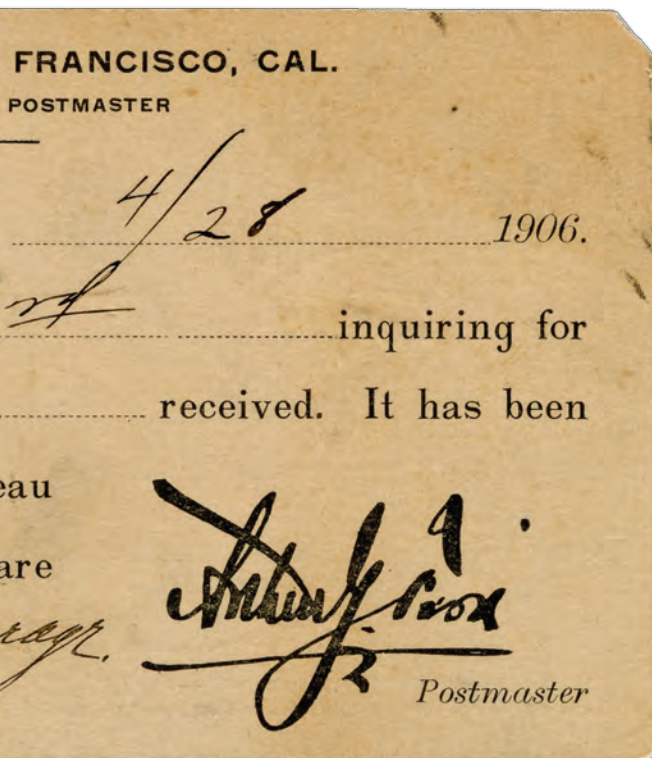 FRANCISCO, CAL.
POSTMASTER
4/28 1906.
inquiring for
received. It has been
eau
are
Arthur G Fisk
Postmaster